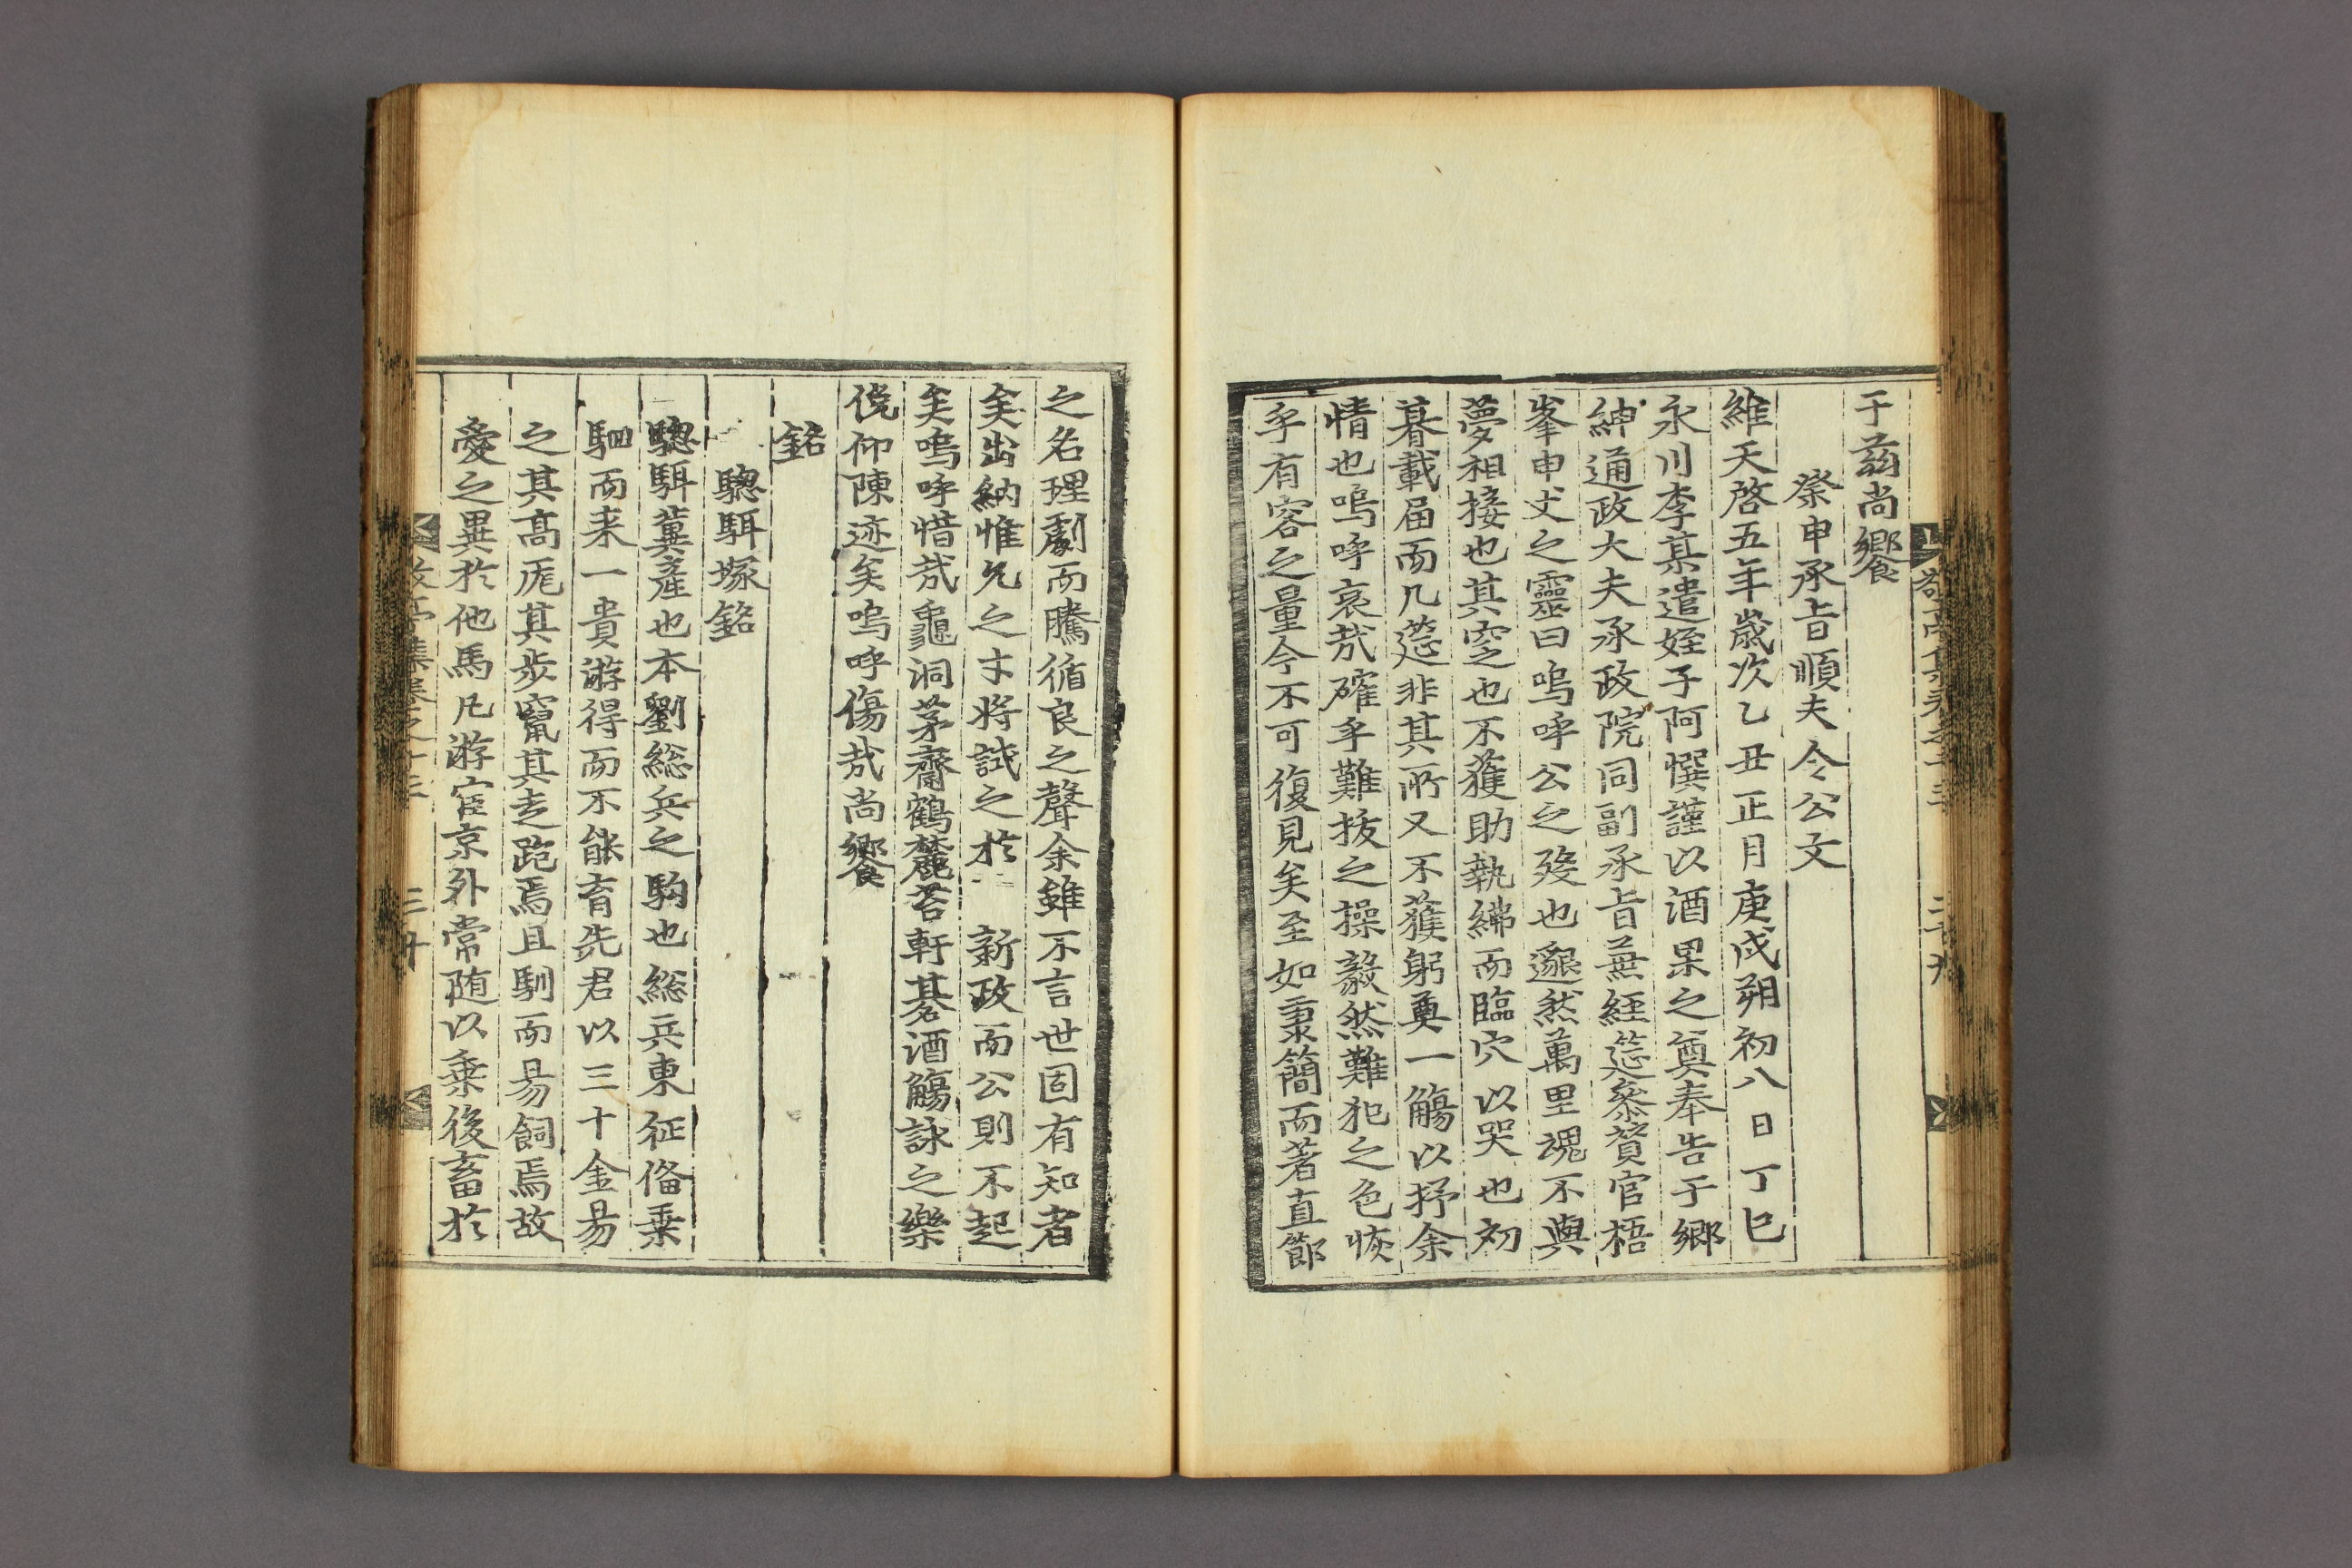 于茲尚饗
祭申承旨順夫令公文
維天啓五年歲次乙丑正月庚戌朔初八日丁巳
永川李某遣姪子阿㦃謹以酒果之奠奉告于鄉
紳通政大夫承政院同副承旨兼經筵參贊官梧
峯申丈之靈曰嗚呼公之歿也邈然萬里魂不與
夢相接也其窆也不獲助執紼而臨穴以哭也初
朞載届而几筵非其所又不獲躬奠一觴以抒余
情也嗚呼哀哉確乎難拔之操毅然難犯之色恢
乎有容之量今不可復見矣至如秉簡而著直節
之名理劇而騰循良之聲余雖不言世固有知者
矣出納惟允之才將試之於 新政而公則不起
矣嗚呼惜哉龜洞茅齋鶴麓苔軒碁酒觴詠之樂
俛仰陳迹矣嗚呼傷哉尚饗
銘
驄駬塚銘
驄駬冀產也本劉総兵之駒也総兵東征俻乗
駟而来一貴游得而不能育先君以三十金昜
之其高厖其步竄其走跑焉且馴而昜飼焉故
愛之異於他馬凡游宦京外常随以乗後畜於
敬亭集卷之十三 二十九
敬亭集卷之十三 三十